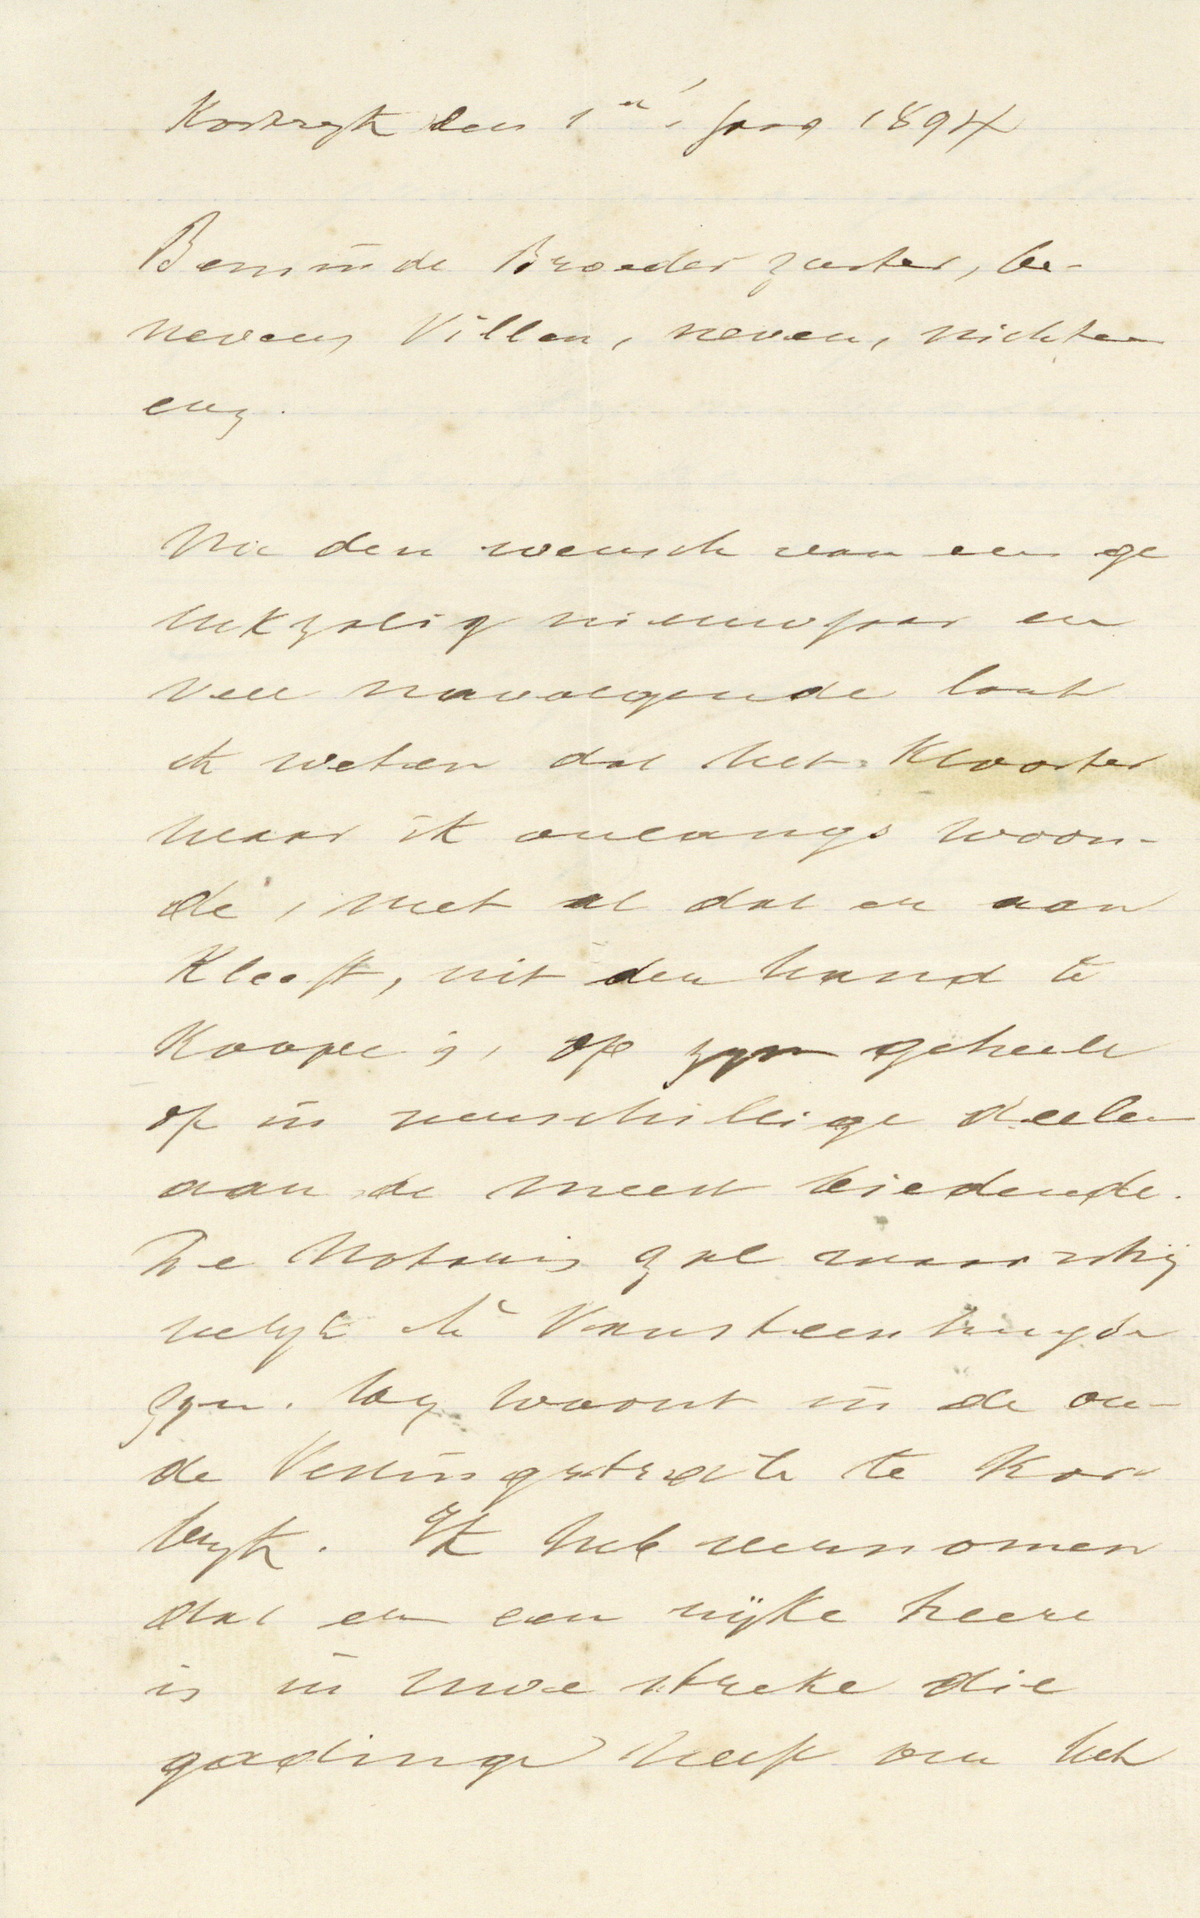 Kortryk den 1en jaar 1894
Beminde Broeder zuster, be-
nevens Villen, neven, nichten
enz.
Na den wensch van een ge
lukzalig nieuwjaar en
veel navolgende laat
ik weten dat het Klooster
waar ik onlangs woon-
de, met al dat er aan
Kleeft, uit der hand te
Koope is, op zyn geheele
of in verschillige deelen
aan de meest biedende.
De Notaris zal waarschij
nelyk Mr Vansteenhuyde
zyn. Hy woont in de ou-
de Vestingstrate te Kor
tryk. Ik heb vernomen
dat er een rijke heere
is in uwe streke die
gadinge heeft om het